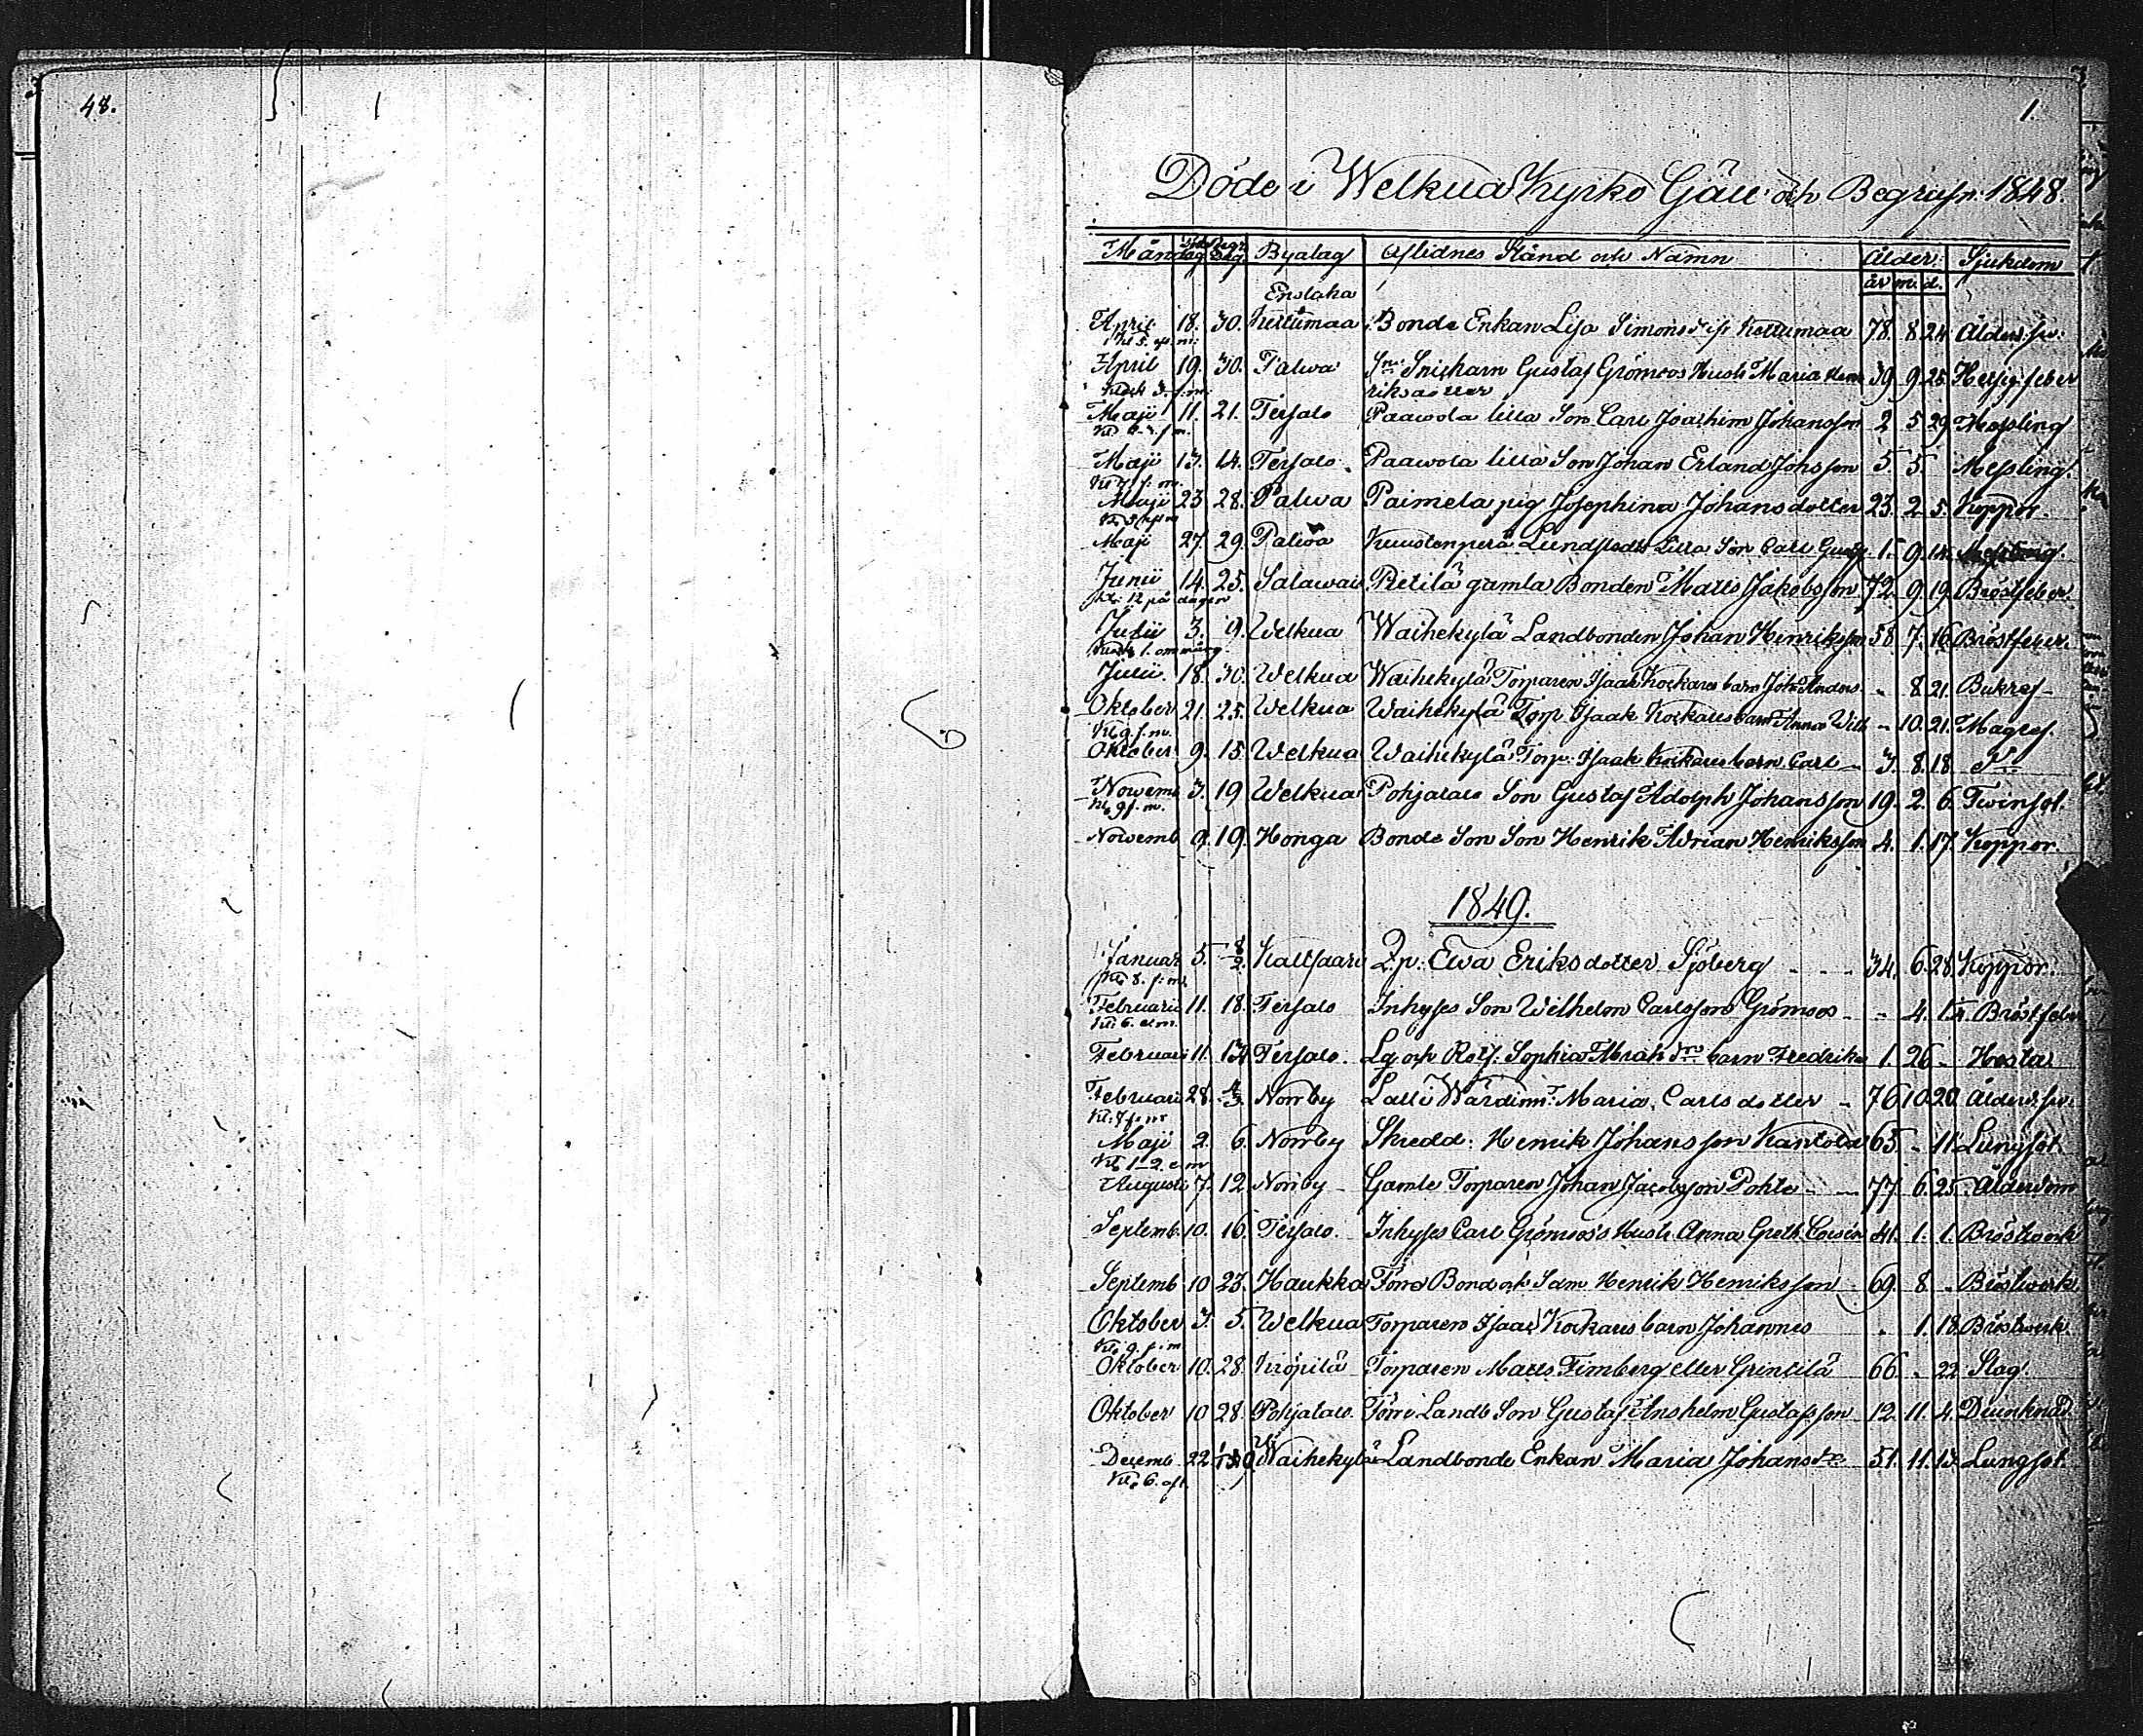 48.
1.
Döde i Welkua Kyrko Gäll och Begrafn: 1848.
Månd dag Begr: dag Byalag Aflidnes Stånd och Namn Ålder: Sjukdom
år m. d.
Endaka
April 18. 30. Kettumaa Bonde Enkan Lisa Simonsd: ifr Kettumaa 78. 8 24 Ålderd:sv:
Kl 5. eft. m:
April 19. 30. Palwa Snickarn Gustaf Grönroos Hustr Maria Hen 39 9 25 Hetsig feber
Klock 3. f. m: riksdotter
Maji 11. 21. Tersalo Paawola lilla Son Carl Joachim Johansson 2 5 29 Messling
Kl: 6. f m.
Maji 13. 14. Tersalo Paawola lilla Son Johan Erland Johsson 5. 5. Messling.
Kl 4 f. m.
Maji 23 28. Palwa Paimela pig Josephina Johansdotter 23. 2 5. Koppor.
Maji 27. 29. Palwa Kuustenperä Lundstedts Lilla Son Carl Gust 1. 9. 14. Messling.
Junii 14. 25. Salawais Pietilä gamla Bonden Matts Jakobsson 72. 9. 19. Bröstfeber.
Kl: 12 på dagen
Julii 3. 9. Welkua Waihekylä Landbonden Johan Henriksson 58 7. 16 Bröstfeber.
Klock 1. om morg.
Julii. 18. 30. Welkua Waihekylä Torparen Isaak Kockares barn Joh: Anders - 8 21. Bukref -
Oktober 21. 25. Welkua Waihekylä Torp Isaak Kockares barn Anna Wilh - 10. 21. Magref.
Kl 9 f. m.
Oktober 9. 15 Welkua Waihekylä Torp: Isaak Kockares barn Carl - 3. 8. 18
Nowemb 3. 19 Welkua Pohjatalo Son Gustaf Adolph Johansson 19. 2. 6. Twinsot.
Kl 9 f. m.
Nowemb 9. 19. Honga Bonde Son Son Henrik Adrian Henriksson 4. 1. 17. Koppor.
1849.
Januar 5. 8/2. Kaitsaari Qp: Ewa Eriksdotter Sjöberg - - - 34. 6. 28. Koppor.
Kl: 8. f: m.
Februarii 11. 18. Tersalo Inhyses Son Wilhelm Carlsson Grönroos - - 4. 15. Bröstfeber
Kl: 6. e. m.
Februari 11. 13 Tersalo. Lg och Rotf. Sophia Abrah dr barn Fredrika 1. 26 - Hosta
Februari 28. 4/3. Norrby Latti Wärdinn: Maria Carlsdotter - 76 10 20 Ålderd:sv:
Kl: 7 f. m
Maji 2. 6. Norrby Skredd: Henrik Johansson Kantola 65. - 11. Lungsot.
Kl: 1-2. e m
Augusti 7. 12. Norrby - Gamle Torparen Johan Jacobsson Pohto - - 77 6. 25. Ålderdom
Septemb. 10. 16. Tersalo. Inhyses Carl Grönroos's Hustr Anna Greth 41. 1. 1. Bröstwerk
Septemb 10 23. Haukka Förra Bond och Sam Henrik Henriksson 69. 8 - Bröstwerk
Oktober 3. 5. Welkua Torparen Isaac Kockares barn Johannes - 1. 18 Bröstwerk.
Kl: 9. f. m
Oktober 10. 28. Kröpilä Torparen Matts Fimberg eller Grintilä 66. - 22 Slag.
Oktober 10 28. Pohjatalo. Förre Landb Son Gustaf Anshelm Gustafsson 12. 11. 4. Drunknad.
Decemb. 22 Waihekylä Landbonde Enkan Maria Johansdr 51. 11. 13. Lungsot.
Kl: 6. eft.